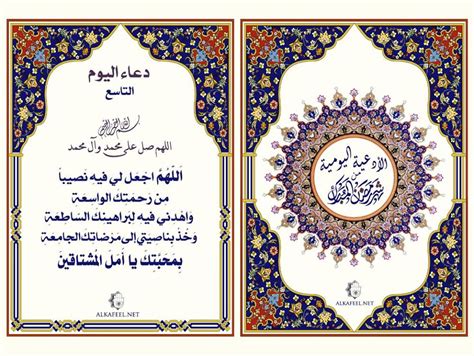 دعاء اليوم
التاسع
بسم الله الرحمن الرحيم
اللهم صل على محمد وآل محمد
اَللّهُمَّ اجْعَل لي فيهِ نَصيباً
مِن رَحمَتِكَ الواسِعَة
وَاهْدِني فيهِ لِبَراهينِكَ السّاطِعَة
وَخُذْ بِناصِيَتي إلى مَرْضاتِكَ الجامِعَة
بِمَحَبَّتِكَ يا اَمَلَ المُشتاقينَ
ALKAFEEL.NET
الأدعية اليومية
من
شهر رمضان المبارك
ALKAFEEL.NET